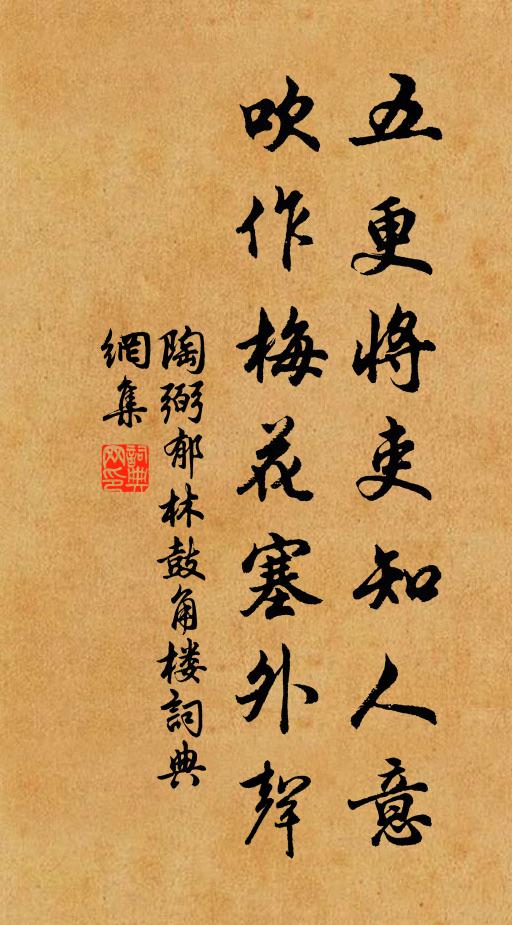 五更將吏知人意
吹作梅花塞外聲
陶弼郁林鼓角楼詞典
網集
詞典
网印